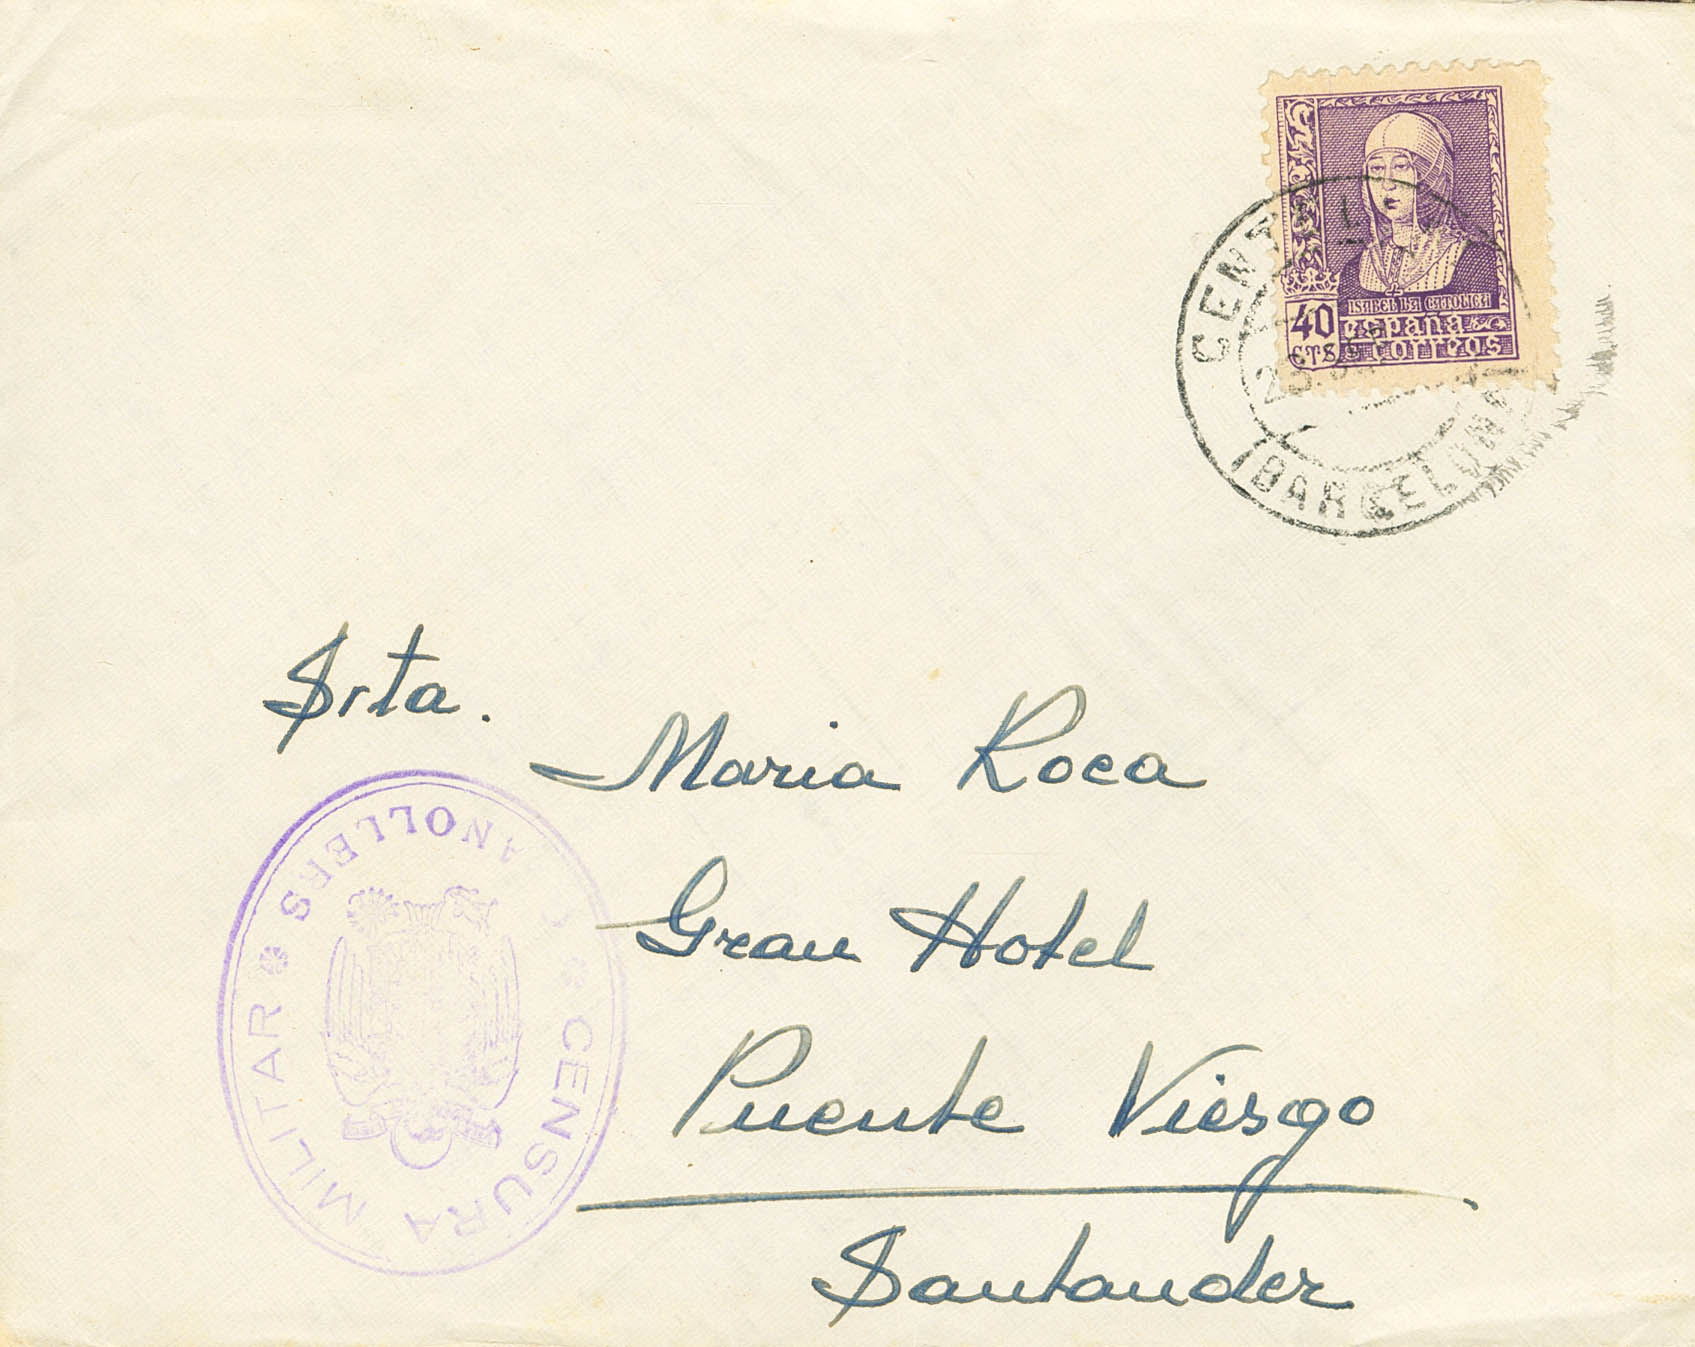 ISABEL LA CATOLICA
40 españa
CTS correos
(BARCELONA)
Srta.
Maria Roca
Gran Hotel
Puente Viesgo
Santander
CENSURA MILITAR